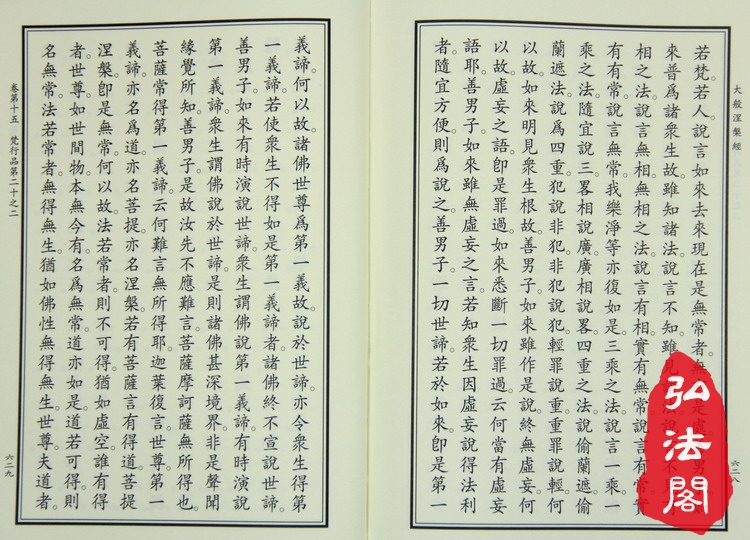 大般涅槃經
若梵若人說言如來去來現在是無常者。無是處男
來普爲諸衆生故。雖知諸法說言不知。雖見法說不見
相之法說言無相。無相之法說言有相。實有無常說言有常。實
有有常說言無常。我樂淨等亦復如是。三乘之法說言一乘。一
乘之法隨宜說三。畧相說廣。廣相說畧。四重之法說偷蘭遮。偷
蘭遮法說爲四重。犯說非犯。非犯說犯。輕罪說重。重罪說輕。何
以故。如來明見衆生根故。善男子。如來雖作是說終無虛妄。何
以故。虛妄之語卽是罪過。如來悉斷一切罪過。云何當有虛妄
語耶。善男子。如來雖無虛妄之言。若知衆生因虛妄說得法利
者。隨宜方便。則爲說之。善男子。一切世諦。若於如來。卽是第一
六二八
義諦。何以故。諸佛世尊爲第一義故。說於世諦。亦令衆生得第
一義諦。若使衆生不得如是第一義諦者。諸佛終不宣說世諦。
善男子。如來有時演說世諦。衆生謂佛說第一義諦。有時演說
第一義諦。衆生謂佛說於世諦。是則諸佛甚深境界。非是聲聞
緣覺所知。善男子。是故汝先不應難言菩薩摩訶薩無所得也。
菩薩常得第一義諦。云何難言無所得耶。迦葉復言。世尊。第一
義諦。亦名爲道。亦名菩提。亦名涅槃。若有菩薩言有得道菩提
涅槃。卽是無常。何以故。法若常者則不可得。猶如虛空。誰有得
者。世尊。如世間物。本無今有。名爲無常。道亦如是。道若可得。則
名無常。法若常者。無得無生。猶如佛性無得無生。世尊。夫道者。
卷第十五 梵行品第二十之二
六二九
弘法閣